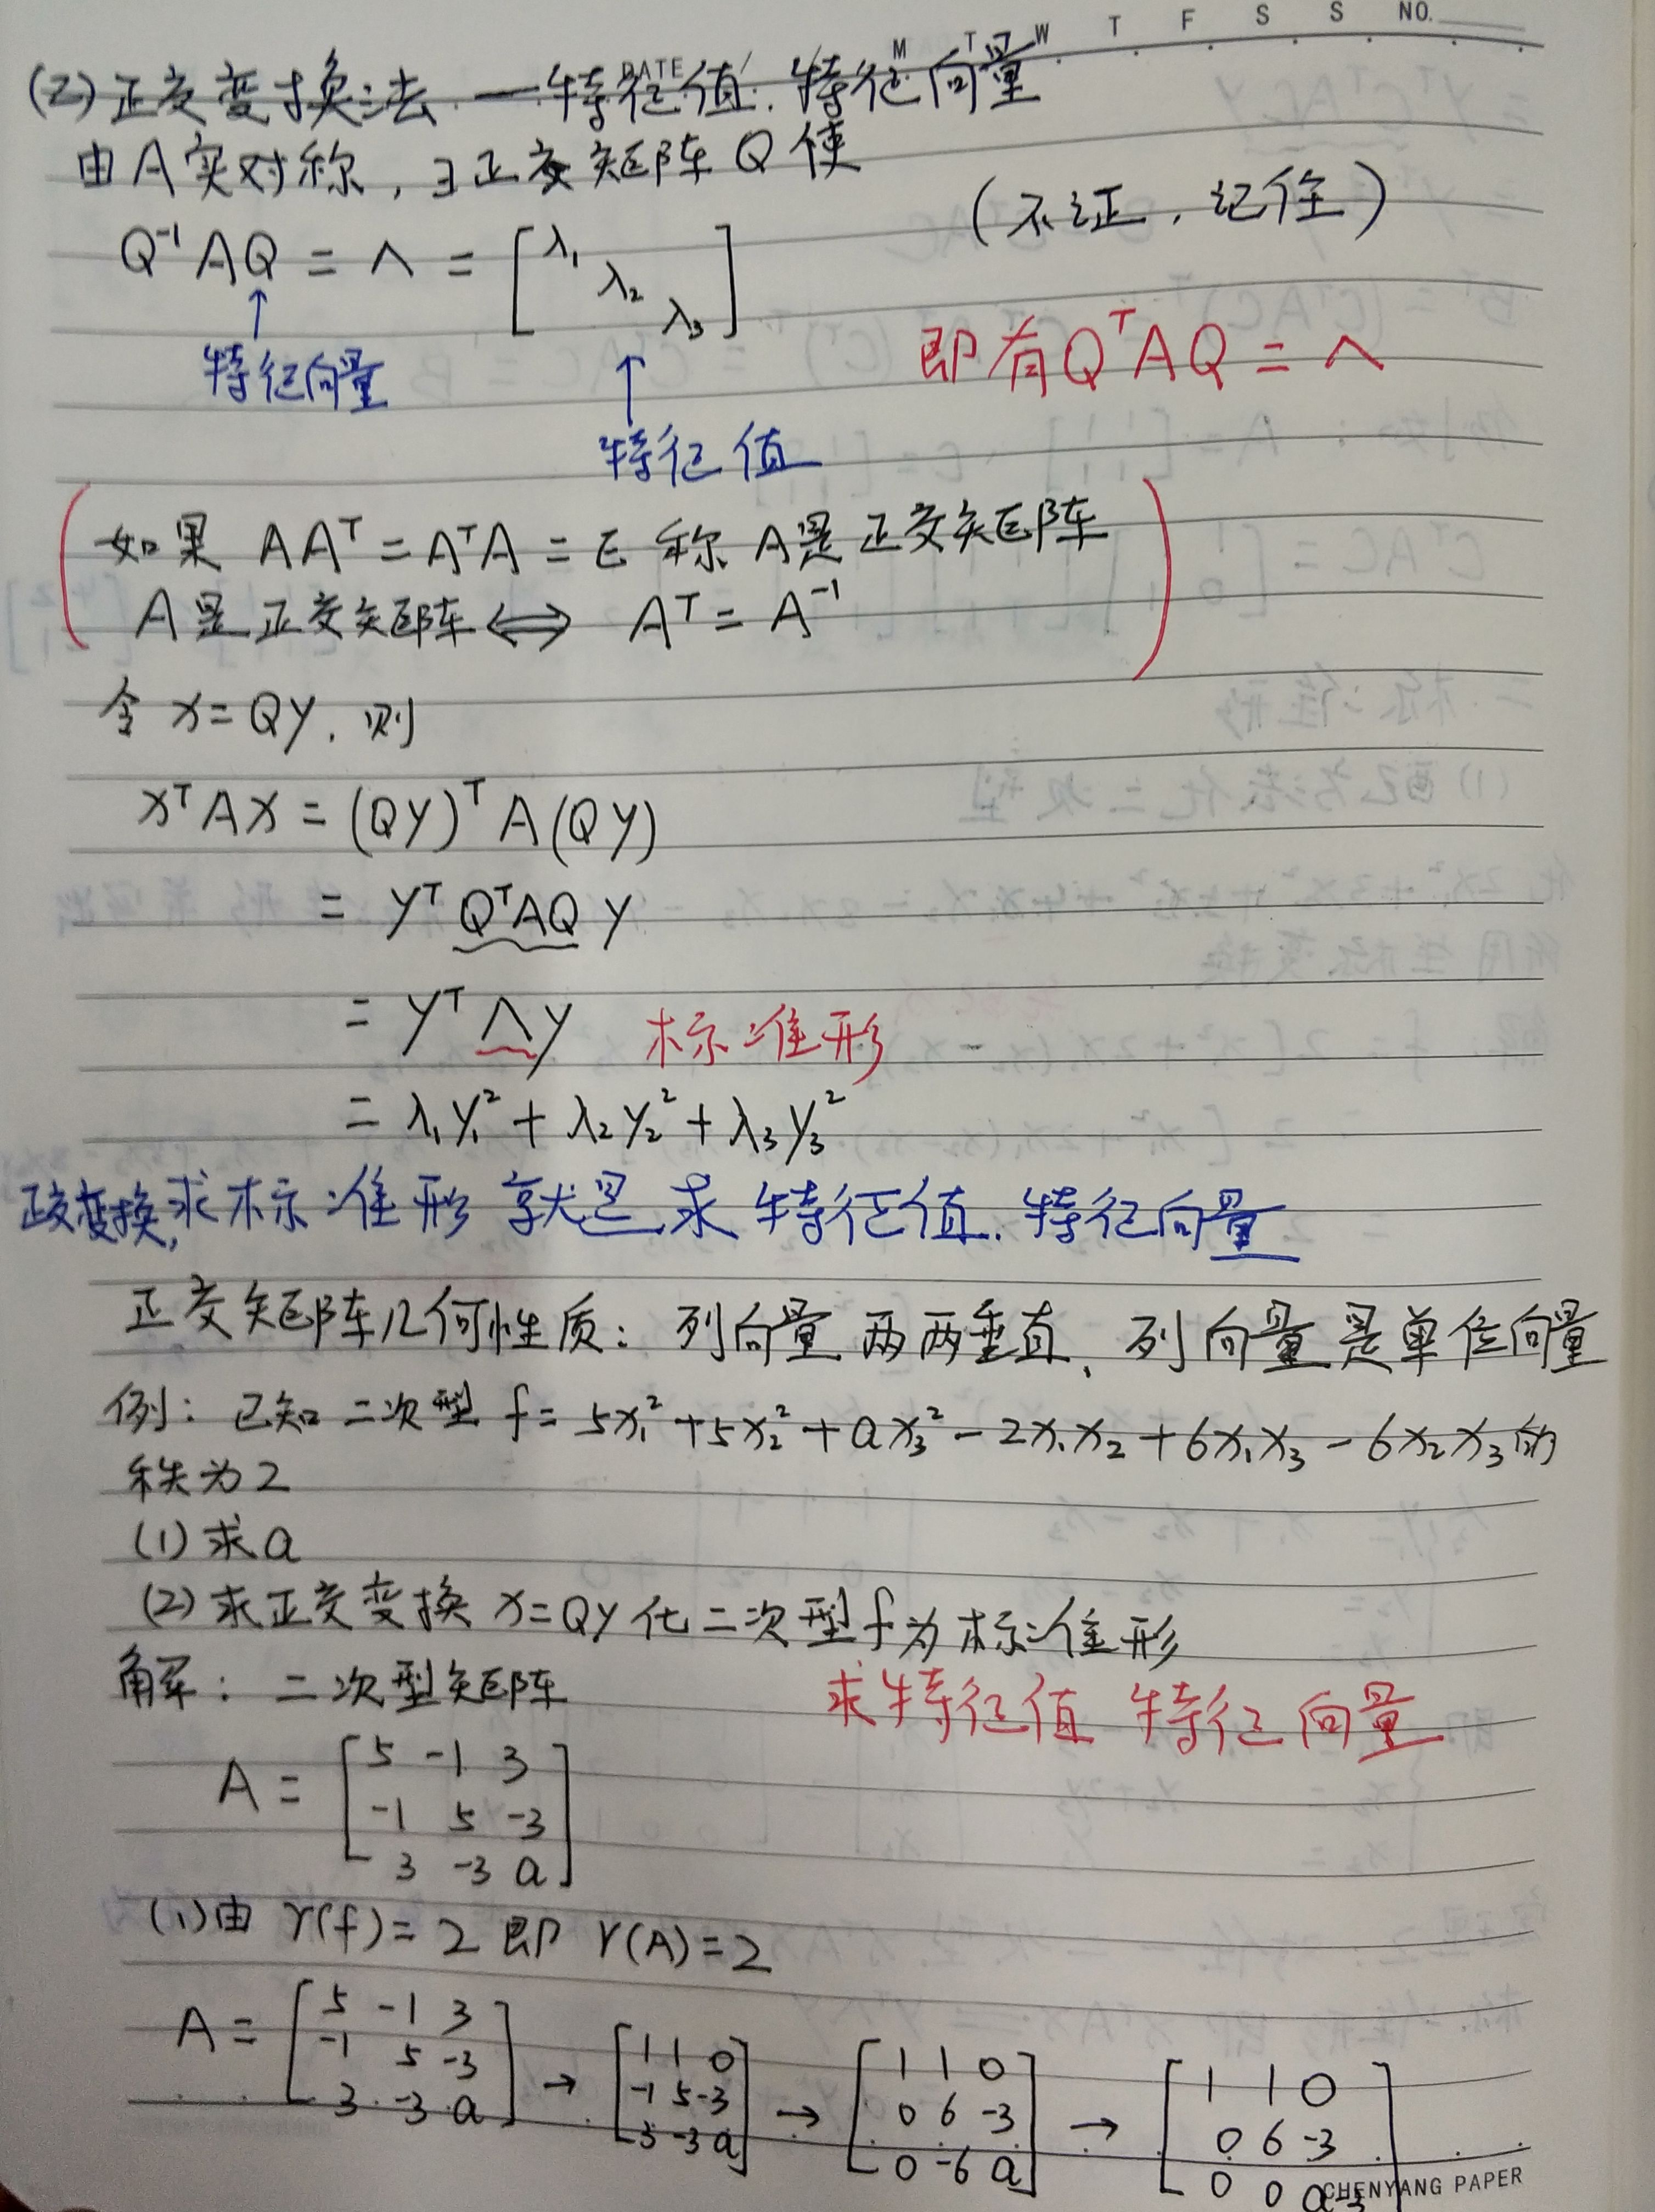 M T W T F S S NO.
DATE
(2) 正交变换法 — 特征值、特征向量
由A实对称, ∃正交矩阵Q使
(不证, 记住)
Q⁻¹AQ = Λ = [λ₁ λ₂ λ₃]
↑ ↑
特征向量
特征值
即有QᵀAQ = Λ
(如果 AAᵀ = AᵀA = E 称 A是正交矩阵
A是正交矩阵 ⟺ Aᵀ = A⁻¹)
令 x = Qy, 则
xᵀAx = (Qy)ᵀA(Qy)
= yᵀQᵀAQy
= yᵀΛy 标准形
= λ₁y₁² + λ₂y₂² + λ₃y₃²
正交变换,求标准形就是求特征值、特征向量
正交矩阵几何性质: 列向量两两垂直、列向量是单位向量
例: 已知二次型 f = 5x₁² + 5x₂² + ax₃² - 2x₁x₂ + 6x₁x₃ - 6x₂x₃的
秩为2
(1) 求a
(2) 求正交变换 x=Qy 化二次型f为标准形
解: 二次型矩阵
求特征值 特征向量
A = [5 -1 3
-1 5 -3
3 -3 a]
(1) 由 r(f) = 2 即 r(A) = 2
A = [5 -1 3 → [1 1 0 → [1 1 0 → [1 1 0
-1 5 -3 -1 5 -3 0 6 -3 0 6 -3
3 -3 a] 3 -3 a] 0 -6 a] 0 0 a-3]
CHENYANG PAPER